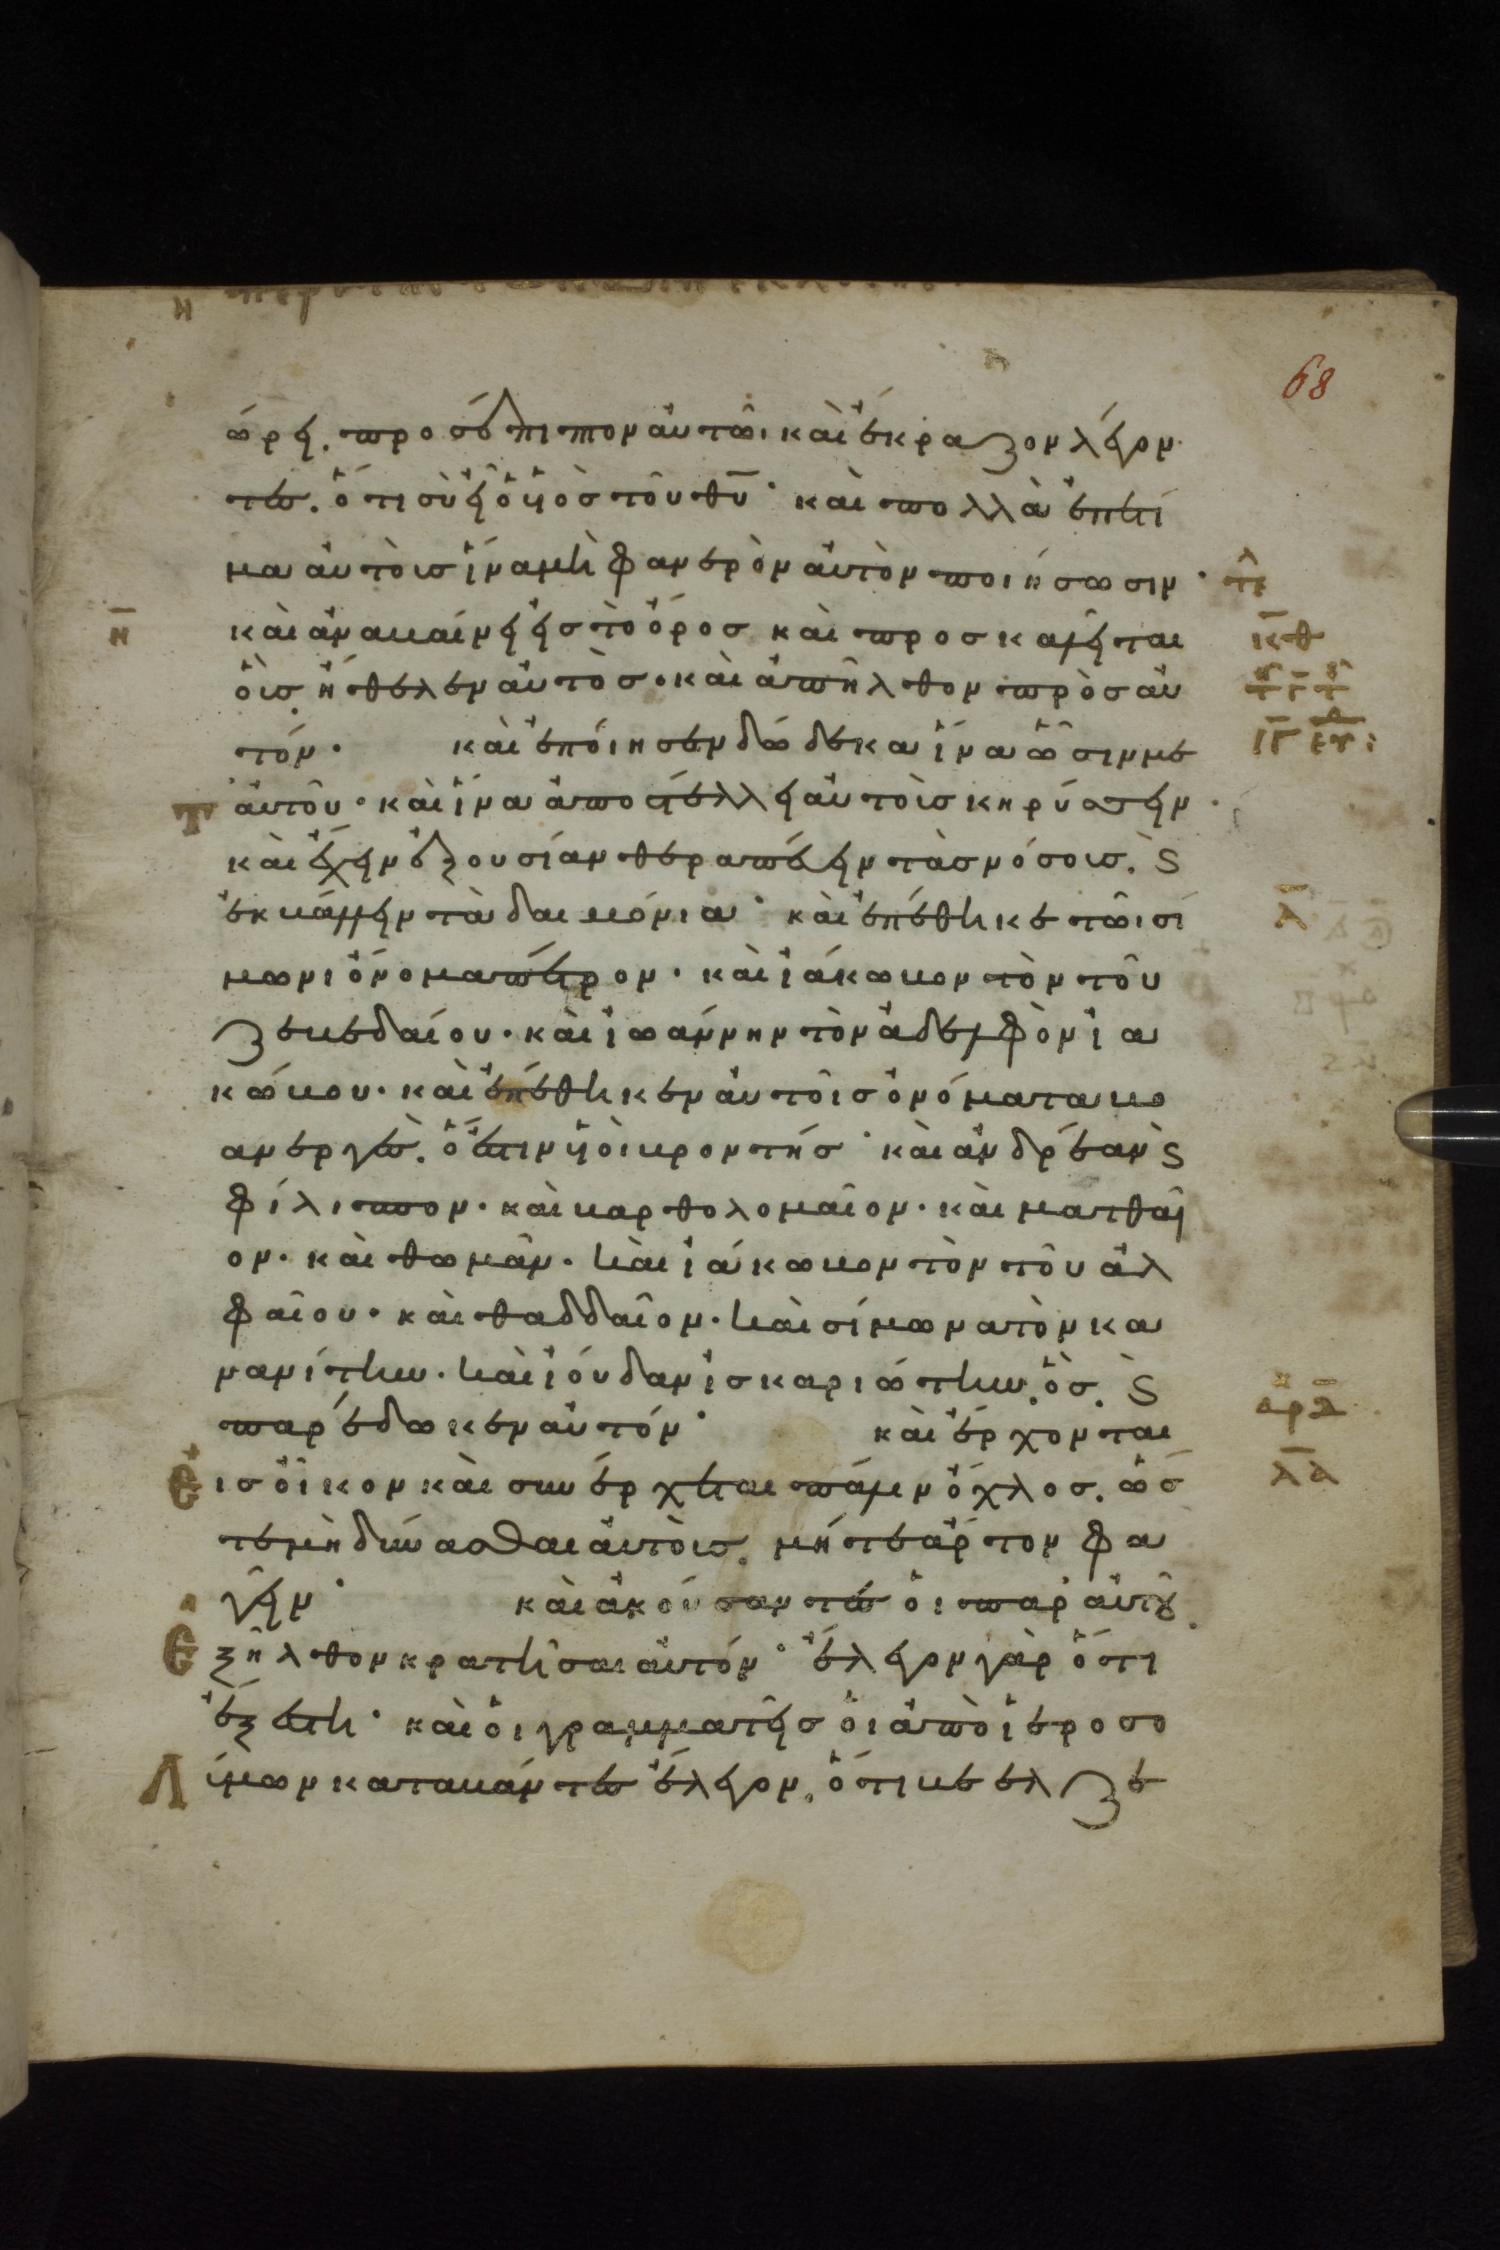 68
ώρει. προσέπιπτον αὐτῶι καὶ ἔκραζον λέγον
τες. ὅτι σὺ εἶ ὁ υἱὸς τοῦ θυ̅· καὶ πολλὰ ἐπετί
μα αὐτοῖς ἵνα μὴ φανερὸν αὐτὸν ποιήσωσιν·
η̅ καὶ ἀναβαίνει εἰς τὸ ὄρος καὶ προσκαλεῖται κθ̅
οὓς ἤθελεν αὐτὸς· καὶ ἀπῆλθον πρὸς αὐ
τόν· καὶ ἐποίησεν δώδεκα ἵνα ὦσιν με
τ αὐτοῦ· καὶ ἵνα ἀποστέλλει αὐτοὺς κηρύσσειν·
καὶ ἔχειν ἐξουσίαν θεραπεύειν τὰς νόσους. ϛ
ἐκβάλλειν τὰ δαιμόνια· καὶ ἐπέθηκε τῶι σί λ̅
μωνι ὄνομα πέτρον· καὶ ἰάκωβον τὸν τοῦ
ζεβεδαίου· καὶ ἰωάννην τὸν ἀδελφὸν ἰα
κώβου· καὶ ἐπέθηκεν αὐτοῖς ὀνόματα βο
ανεργὲς. ὅ ἐστιν υἱοὶ βροντῆς· καὶ ἀνδρέαν ϛ
φίλιππον· καὶ βαρθολομαῖον· καὶ ματθαῖ
ον· καὶ θωμᾶν· καὶ ἰάκωβον τὸν τοῦ ἀλ
φαίου· καὶ θαδδαῖον· καὶ σίμωνα τὸν κα
νανίτην· καὶ ἰούδαν ἰσκαριώτην. ὃς. ϛ
παρέδωκεν αὐτόν· καὶ ἔρχονται
εἰς οἶκον καὶ συνέρχεται πάλιν ὄχλος. ὥσ λα̅
τε μὴ δύνασθαι αὐτοὺς. μήτε ἄρτον φα
γεῖν· καὶ ἀκούσαντες οἱ παρ' αὐτοῦ
ἐξῆλθον κρατῆσαι αὐτόν· ἔλεγον γὰρ ὅτι
ἐξέστη· καὶ οἱ γραμματεῖς οἱ ἀπὸ ἱεροσο
λύμων καταβάντες ἔλεγον. ὅτι βεελζε